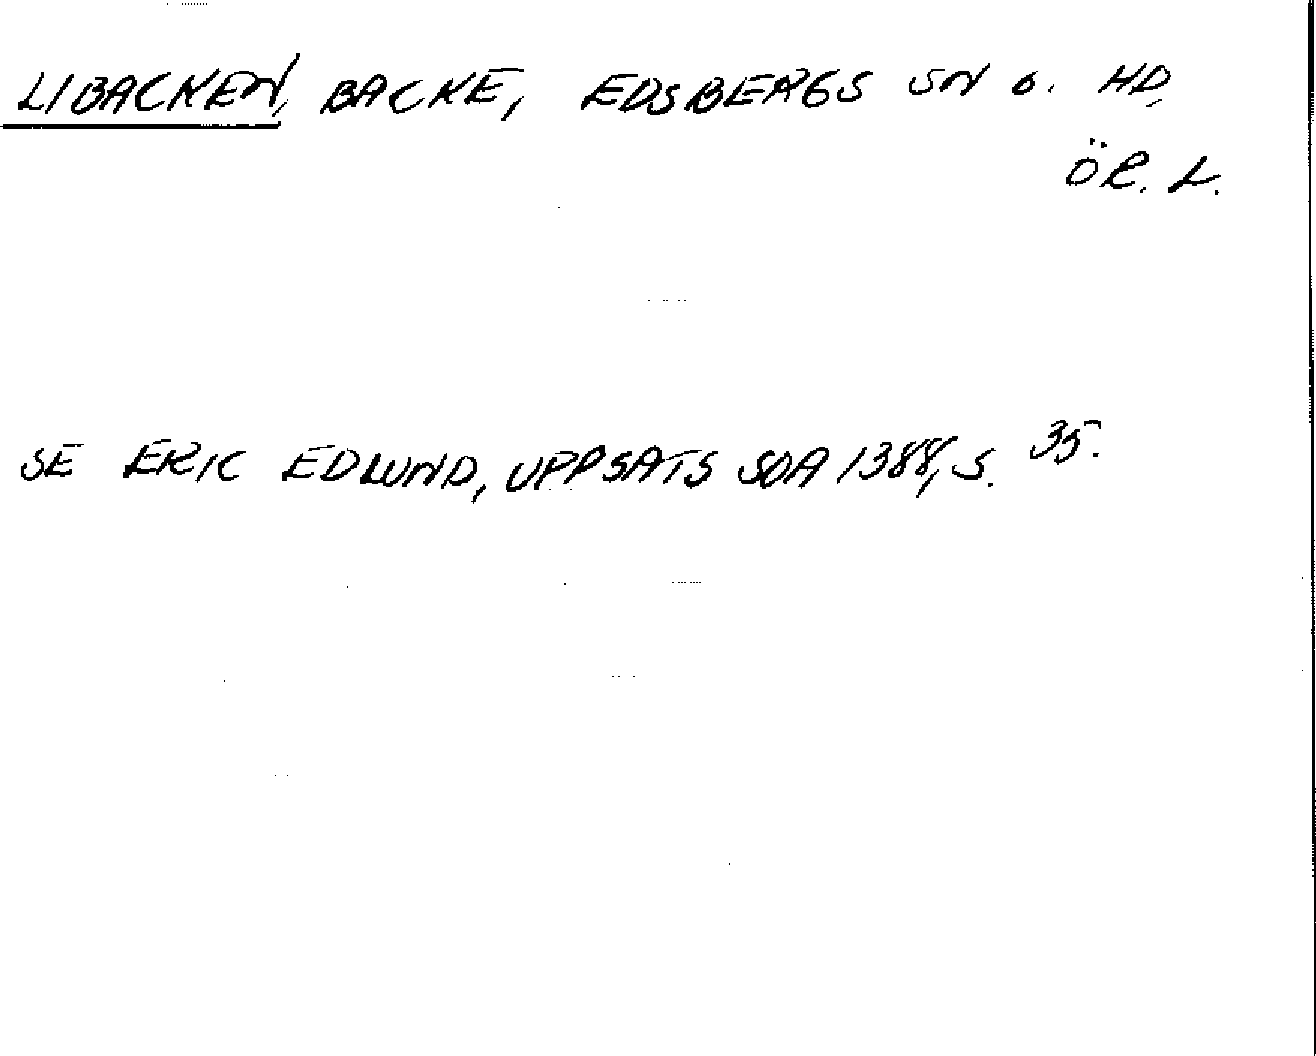 LIBACKEN, BACKE, EDSBERGS SN O. HD,
ÖR. L.
SE ERIC EDLUND, UPPSATS SOA 1388, S. 35.